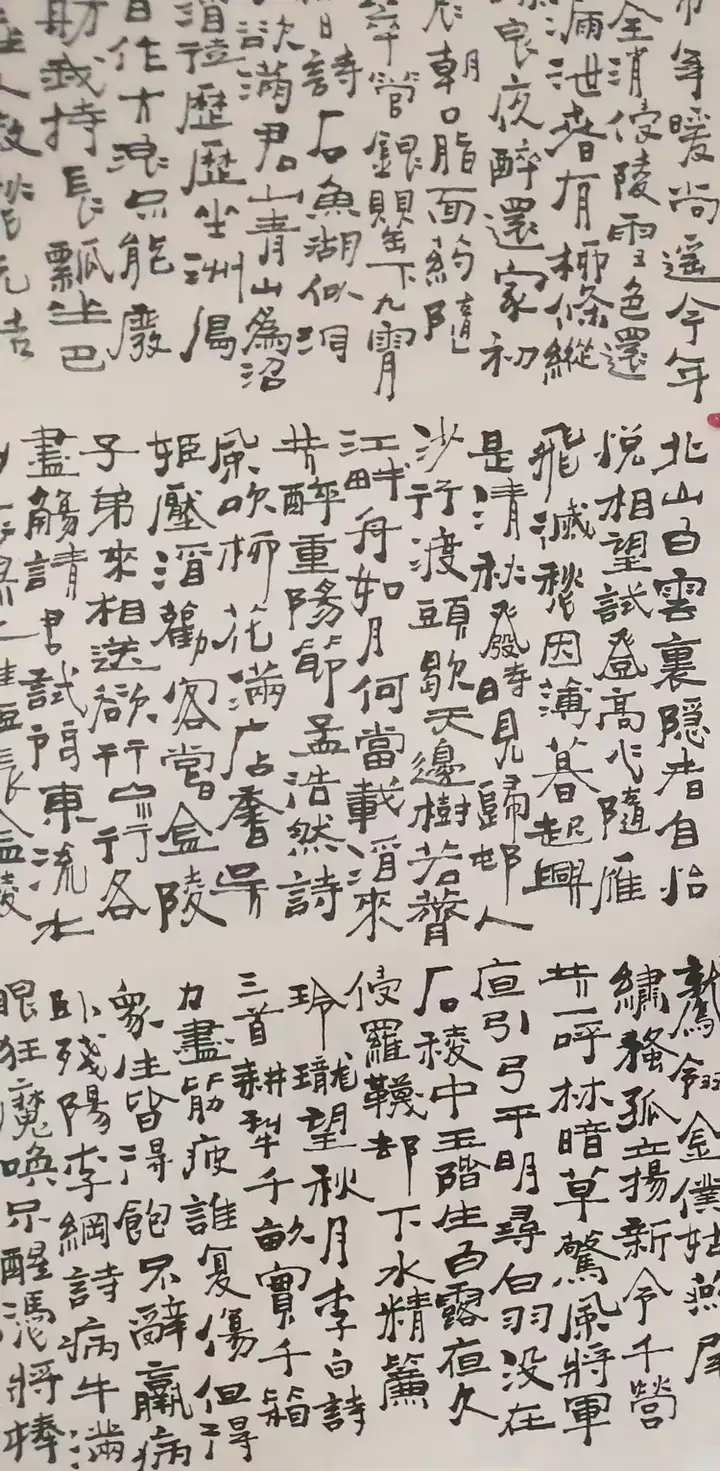 年暖尚遥今年
全消侵陵雪色還
漏泄春有柳條縱
良夜醉還家初
朝口脂面药隨
翠管銀罌下九霄
日詩石魚湖似洞
欲滿君山青山為沼
酒徒歷歷坐洲島
日作大浪不能廢
舫我持長瓢坐巴
北山白雲裏隱者自怡
悅相望試登高心隨雁
飛滅愁因薄暮起興
是清秋發時見歸邨人
沙行渡頭歇天邊樹若薺
江畔舟如月何當載酒來
共醉重陽節孟浩然詩
風吹柳花滿店香吳
姬壓酒勸客嘗金陵
子弟來相送欲行不行各
盡觴請君試問東流水
之誰短長金陵
鷲翎金僕姑燕尾
繡蝥孤立揚新令千營
共一呼林暗草驚風將軍
夜引弓平明尋白羽没在
石稜中玉階生白露夜久
侵羅襪却下水精簾
玲瓏望秋月李白詩
三首耕犁千畝實千箱
力盡筋疲誰復傷但得
衆生皆得飽不辭羸病
卧殘陽李綱詩病牛滿
眼狂魔喚不醒憑將棒